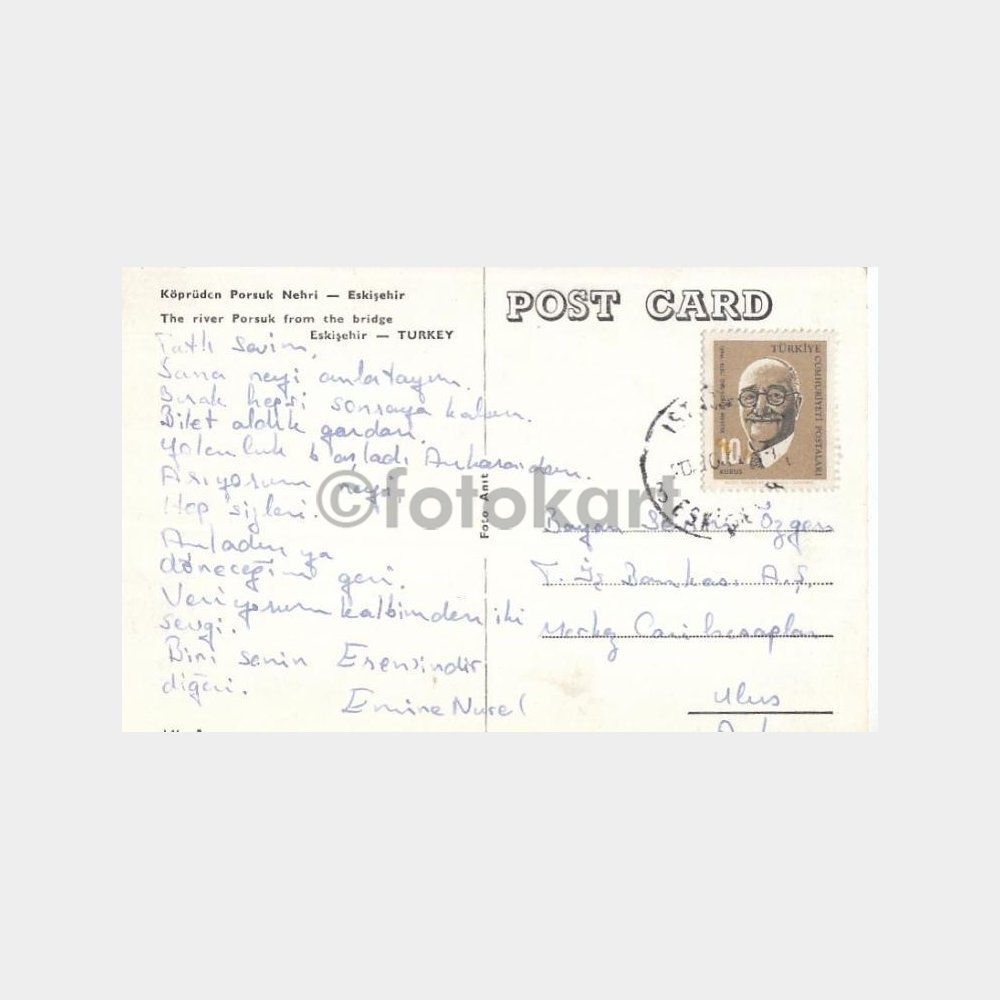 Köprüden Porsuk Nehri — Eskişehir
The river Porsuk from the bridge
Eskişehir — TURKEY
Tatlı Sevim,
Sana neyi anlatayım.
Bırak hepsi sonraya kalsın.
Bilet aldık gardan.
Yolculuk başladı Ankara'dan.
Arıyorum neyi?
Hep sizleri.
Anladın ya
döneceğim geri.
Veriyorum kalbimden iki
sevgi.
Biri senin Erensindir
diğeri.
Emine Nurel
Foto Anıt
©fotokart
POST CARD
TÜRKİYE CUMHURİYETİ POSTALARI
10
KURUŞ
ESKİŞEHİR
Bayan Sevim Özgen
T. İş Bankası A.Ş.
Merkez Cari hesaplar
Ulus